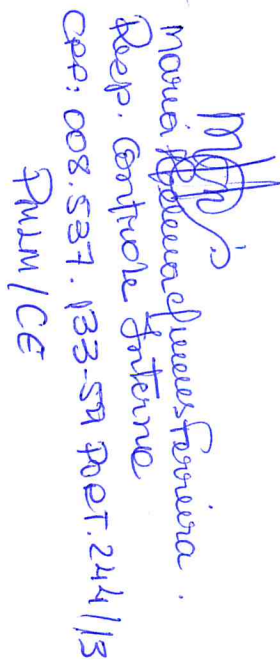 Maria Ferreira.
Resp. Controle Interno
CPF: 008.537.133-59 Port. 244/13
PMJM/CE